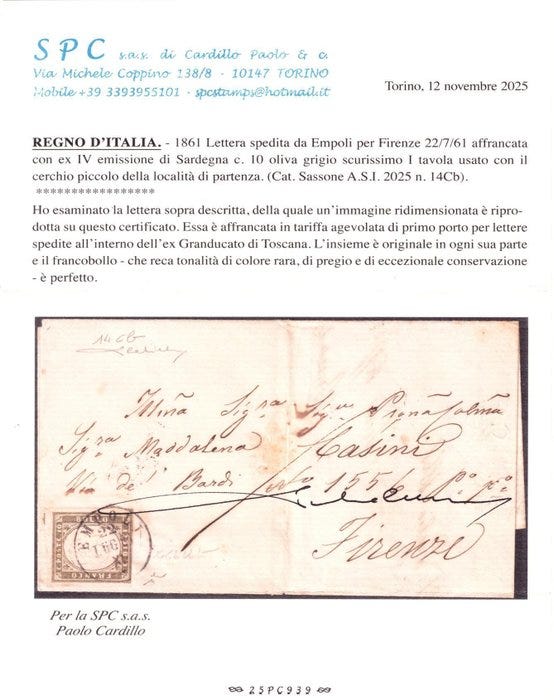 SPC s.a.s. di Cardillo Paolo & c.
Via Michele Coppino 138/8 - 10147 TORINO
Mobile +39 3393955101 - spcstamps@hotmail.it
Torino, 12 novembre 2025
REGNO D'ITALIA. - 1861 Lettera spedita da Empoli per Firenze 22/7/61 affrancata
con ex IV emissione di Sardegna c. 10 oliva grigio scurissimo I tavola usato con il
cerchio piccolo della località di partenza. (Cat. Sassone A.S.I. 2025 n. 14Cb).
*****************
Ho esaminato la lettera sopra descritta, della quale un'immagine ridimensionata è ripro-
dotta su questo certificato. Essa è affrancata in tariffa agevolata di primo porto per lettere
spedite all'interno dell'ex Granducato di Toscana. L'insieme è originale in ogni sua parte
e il francobollo - che reca tonalità di colore rara, di pregio e di eccezionale conservazione
- è perfetto.
14Cb
Sig.ra Maddalena Masini
Via de' Bardi No 1556
Firenze
EMPOLI
22
FRANCO
BOLLO
Per la SPC s.a.s.
Paolo Cardillo
25PC939